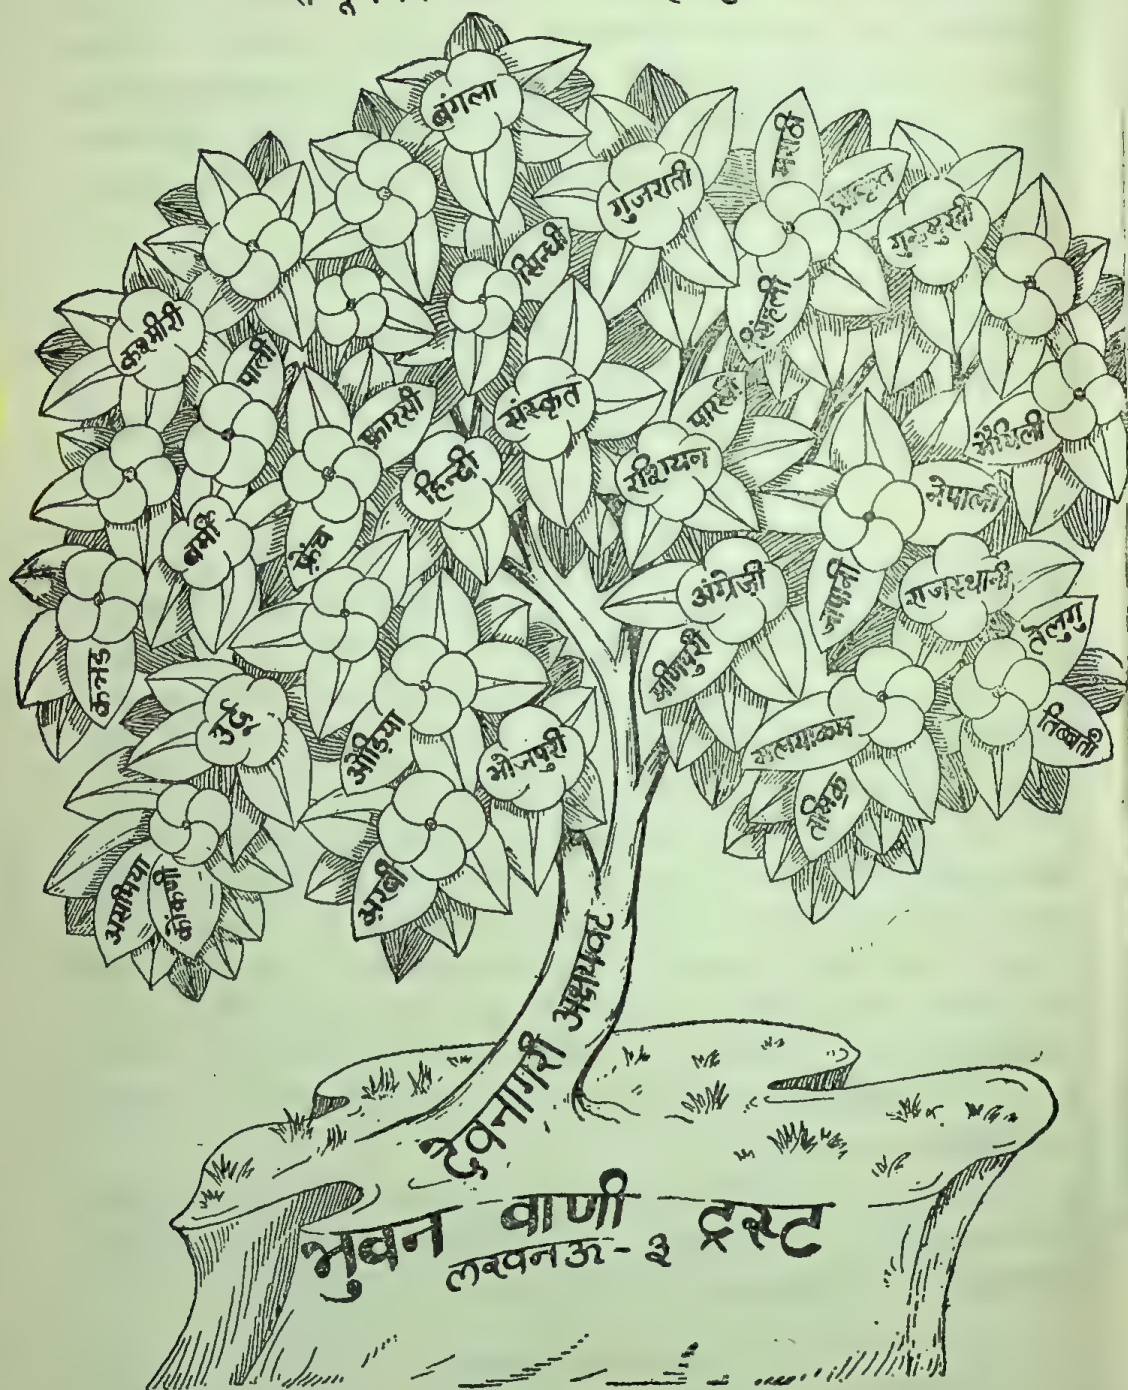 बंगला
मराठी
गुजराती
प्राकृत
गुरुमुखी
सिन्धी
सिंहली
कश्मीरी
पाली
फ़ारसी
संस्कृत
पारसी
मैथिली
हिन्दी
रशियन
नेपाली
बर्मी
फ़्रेंच
अंग्रेज़ी
जापानी
राजस्थानी
तेलुगु
कन्नड
मणिपुरी
उर्दू
ओड़िया
भोजपुरी
मलयाळम
तिब्बती
तमिळ
असमिया
कोंकणी
अरबी
देवनागरी अक्षयवट
भुवन वाणी ट्रस्ट
लखनऊ-३